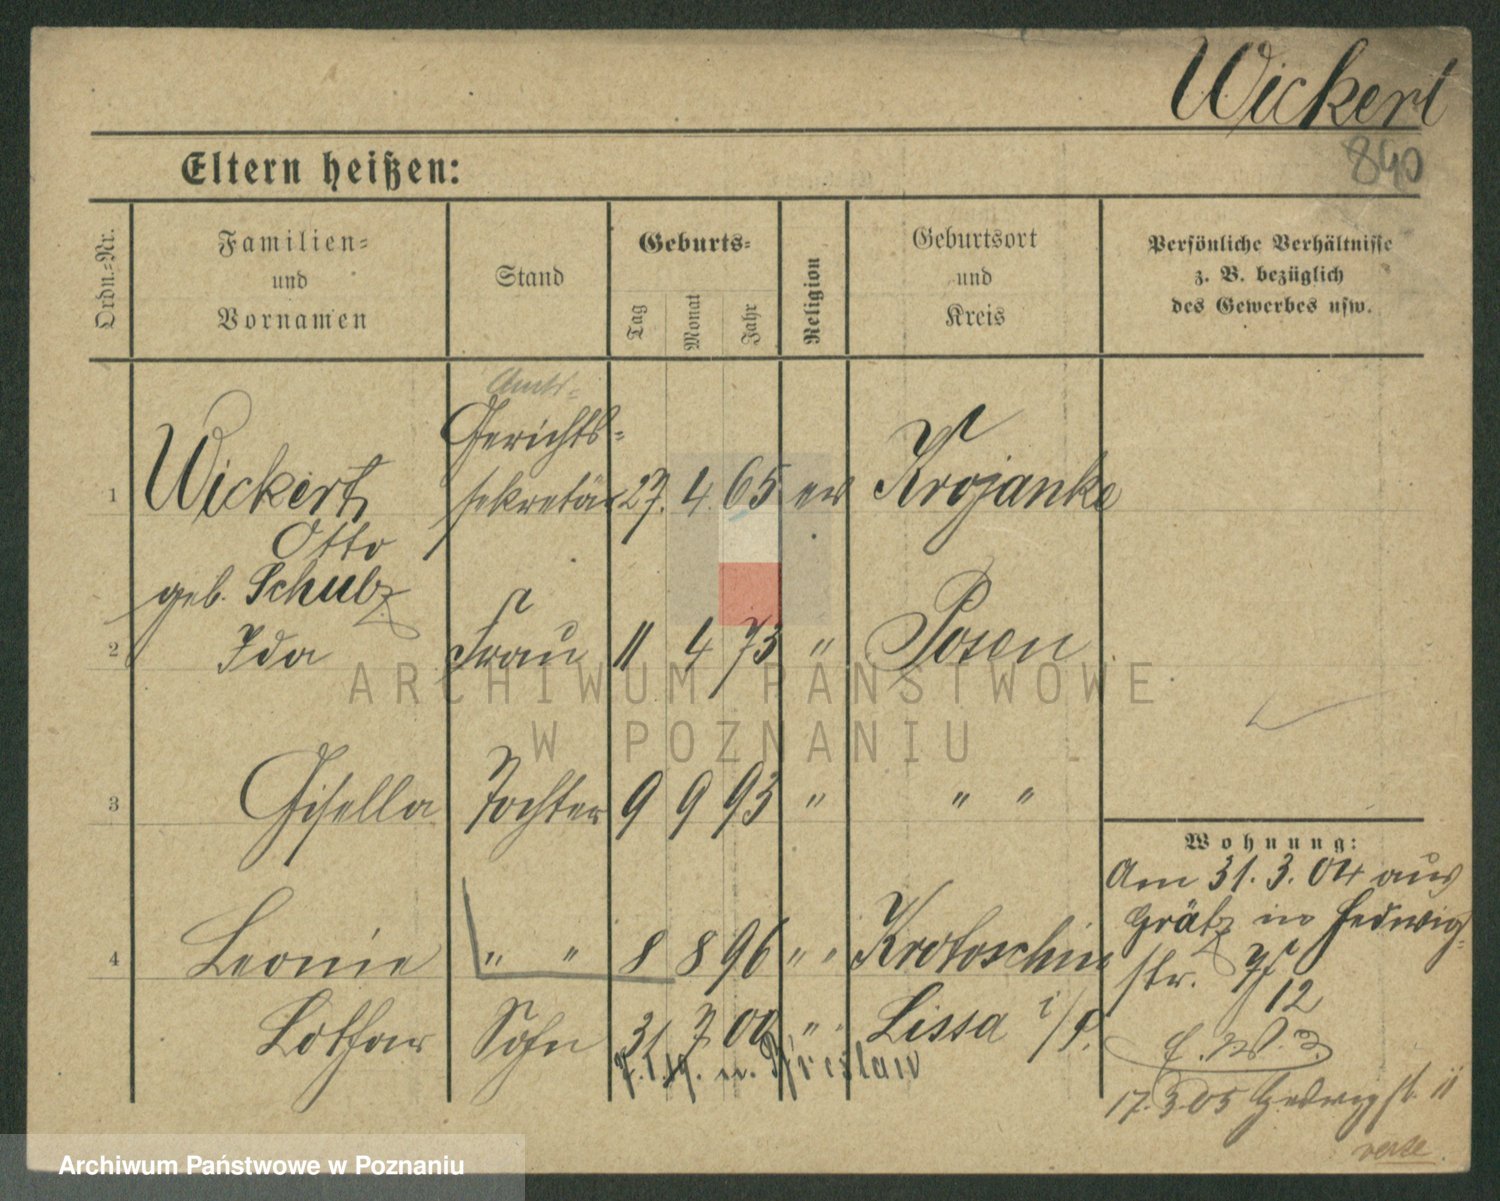 Wickert
840
Eltern heißen:
Ordn.=Nr.
Familien=
und
Vornamen
Stand
Geburts=
Tag
Monat
Jahr
Religion
Geburtsort
und
Kreis
Persönliche Verhältnisse
z. B. bezüglich
des Gewerbes usw.
Amts-
Gerichts-
1 Wickert, sekretär 27. 4. 65 ev Krojanke
Otto
geb. Schulz
2 Ida Frau 11 4 73 " Posen
3 Gisella Tochter 9 9 93 " " "
Wohnung:
Am 31. 3. 04 aus
Grätz in Hedwig-
4 Leonie " " 8 8 96 " " Krotoschin
str.
12
Lothar Sohn 31 7 00 " " Lissa i/P.
7.1.19. n. Breslau
17.3.05 Hedwigst. 11
verte
ARCHIWUM PAŃSTWOWE
W POZNANIU
Archiwum Państwowe w Poznaniu